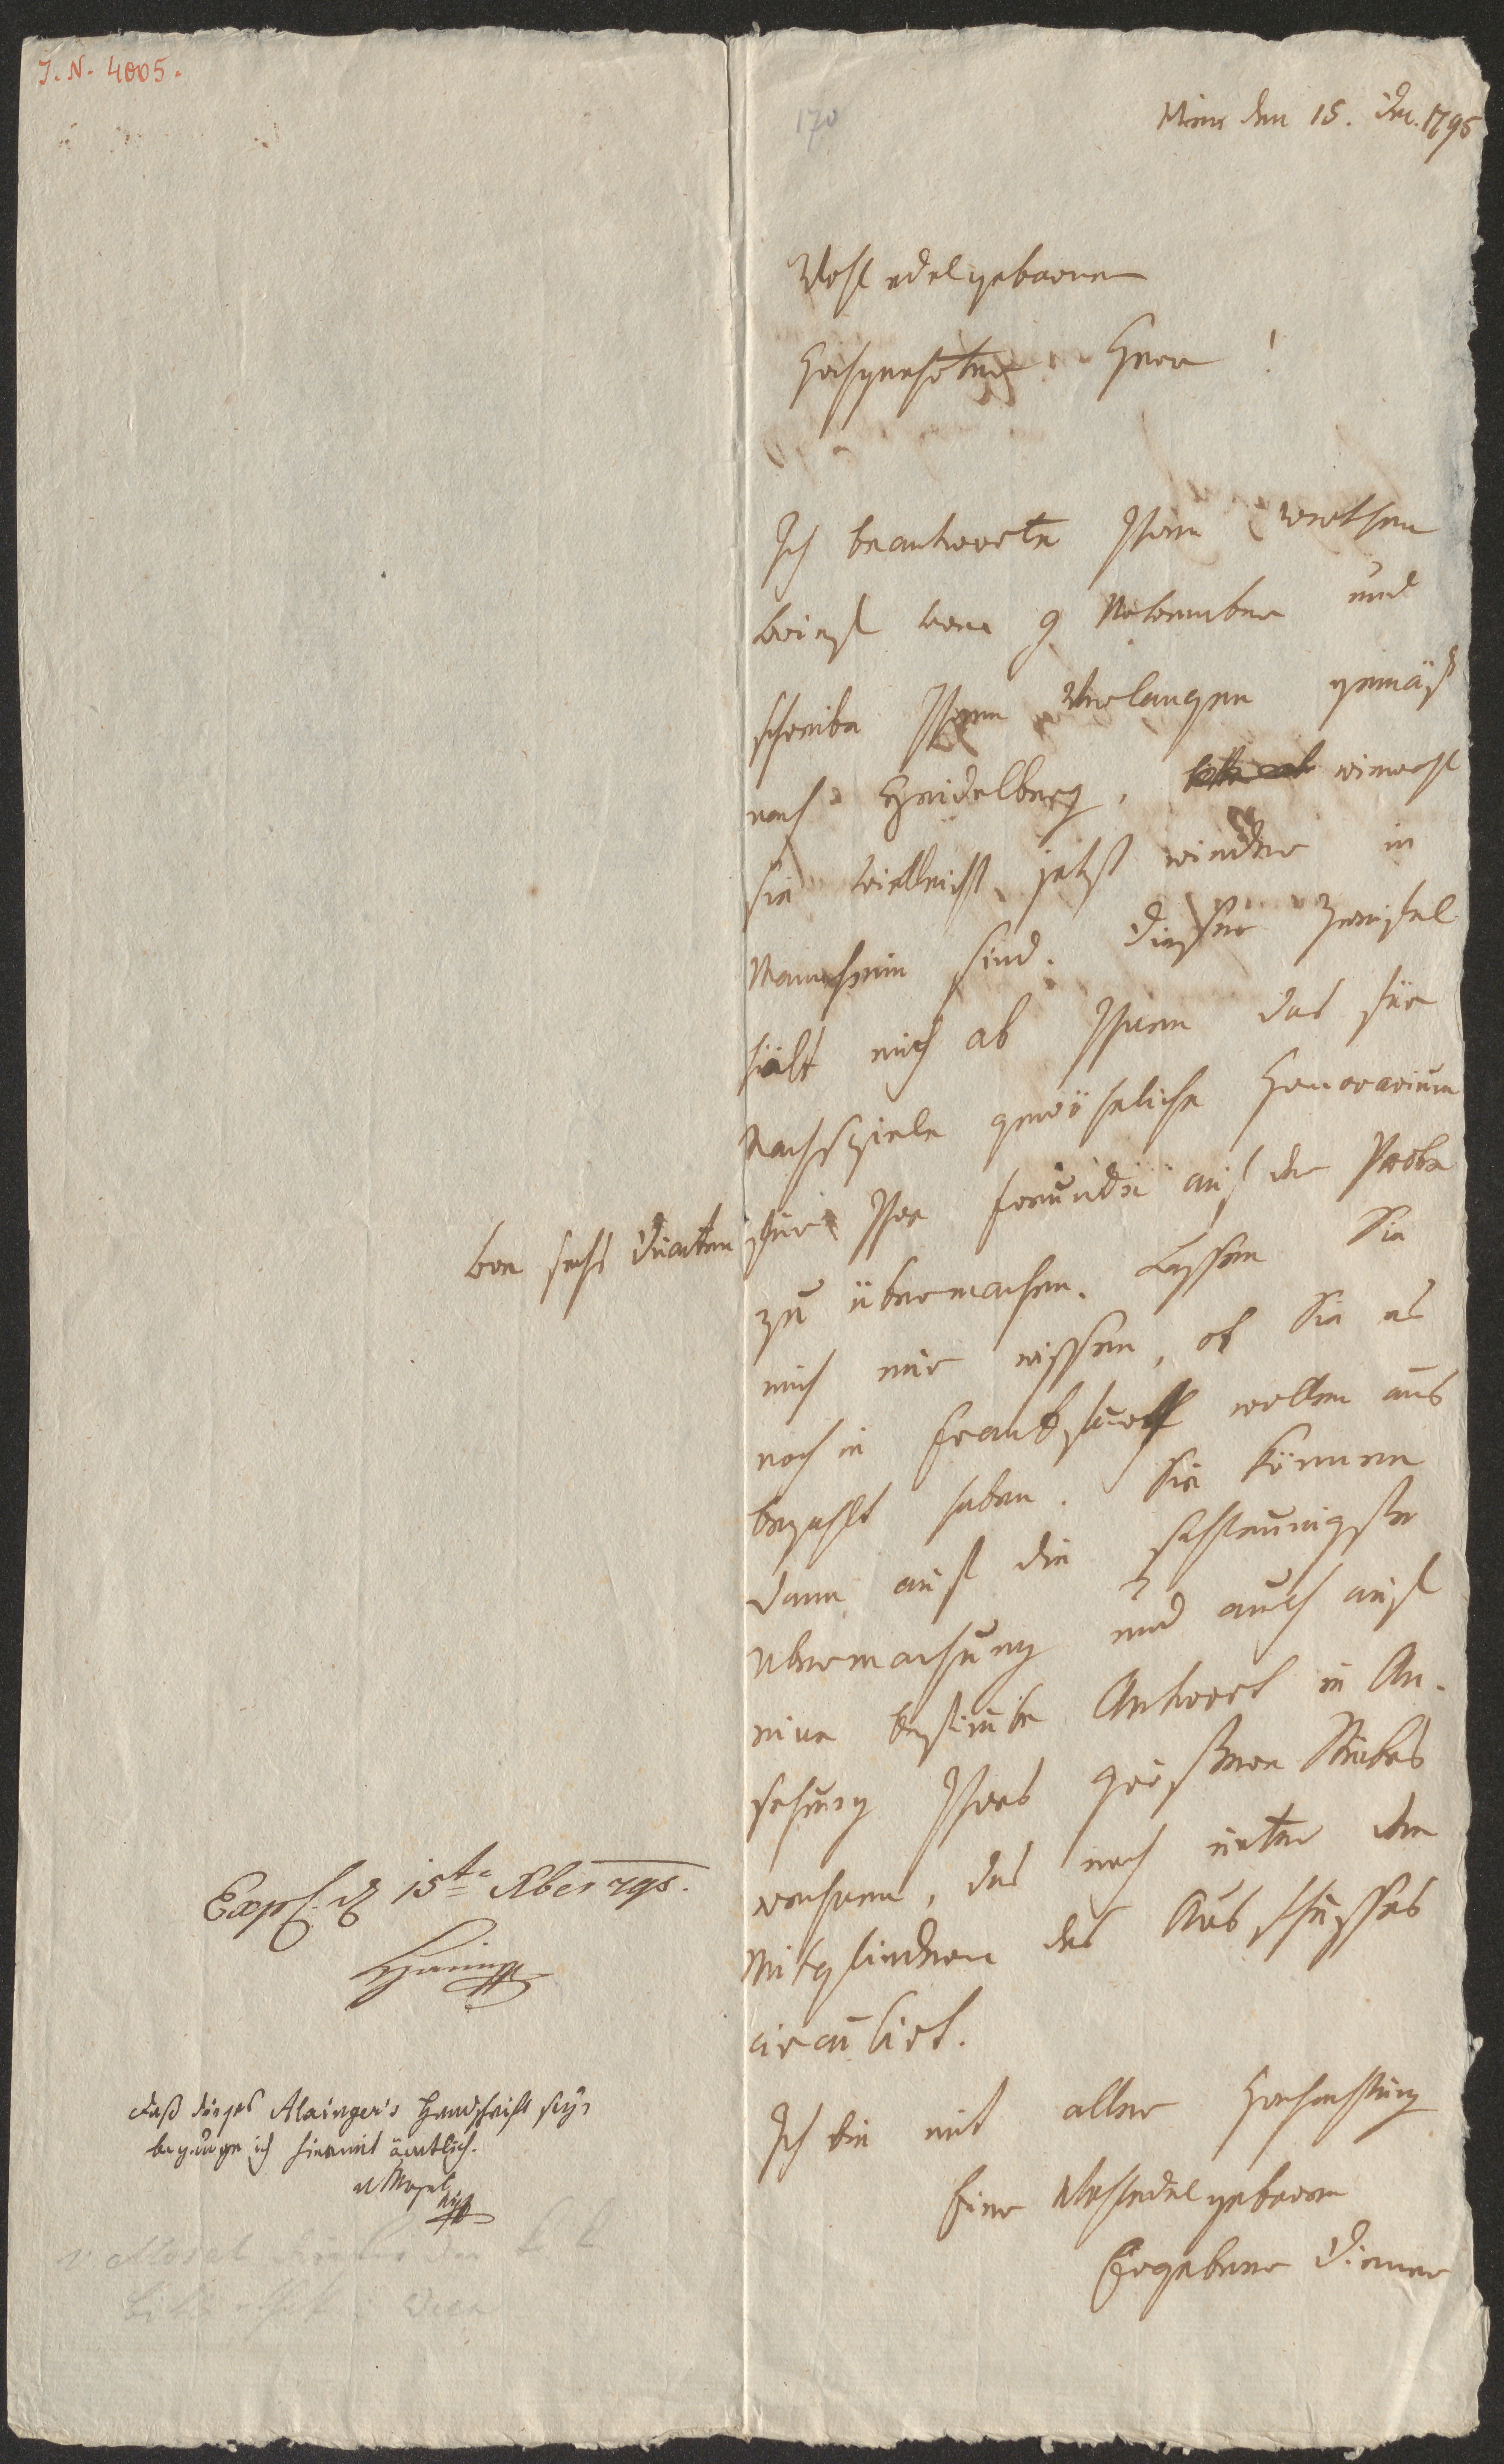 I. N. 4005.
170
Wien den 15. Dec. 1795
Wohledelgeborner
Hochgeehrter Herr!
Ich beantworte Ihren werthen
Brief vom 9 November und
schreibe Ihrem Verlangen gemäß
nach Heidelberg, wiewohl
Sie vielleicht jetzt wieder in
Mannheim sind. Dieser Zweifel
hält mich ab Ihnen das für
Nachspiele gewöhnliche Honorarium
von sechs Ducaten für Ihre Freunde auf der Probe
zu übermachen. Lassen Sie
mich nur wissen, ob Sie es
noch in Frankfurt wollen aus
bezahlt haben. Sie können
dann auf die schleunigste
Ubermachung und auch auf
eine bestimte Antwort in An-
sehung Ihres größern Stückes
rechnen, das noch unter den
Mitgliedern des Ausschusses
circulirt.
Ich bin mit aller Hochachtung
Euer Wohledelgeborn
Ergebener Diener
Exp. 15te Xber 795.
Daß dieses Alxinger's Handschrift sey,
bezeuge ich hiermit ämtlich.
v Mosel
v. Mosel der k k
Bibliothek in Wien